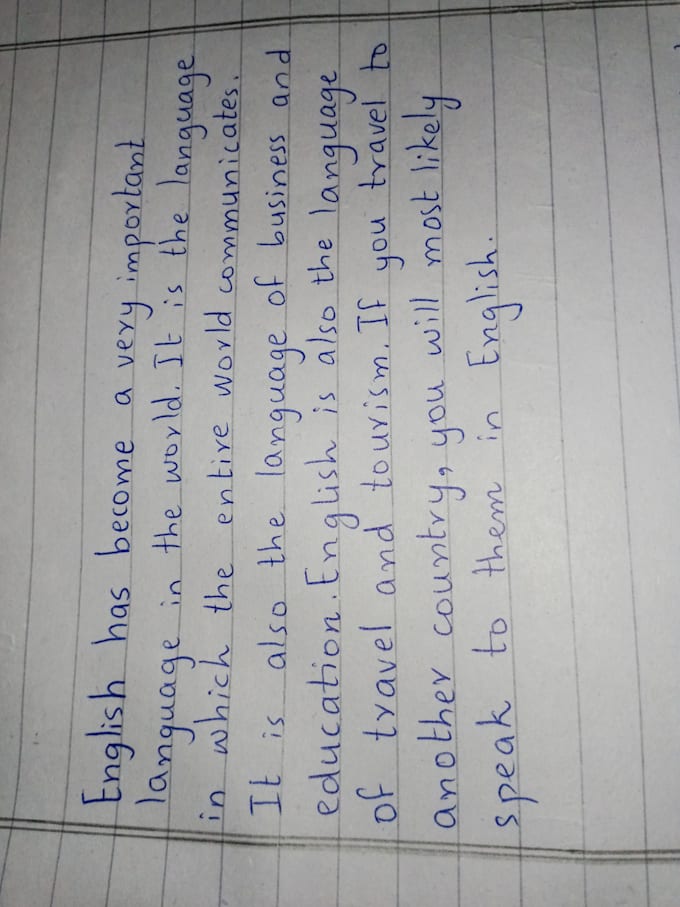 English has become a very important
language in the world. It is the language
in which the entire world communicates.
It is also the language of business and
education. English is also the language
of travel and tourism. If you travel to
another country, you will most likely
speak to them in English.